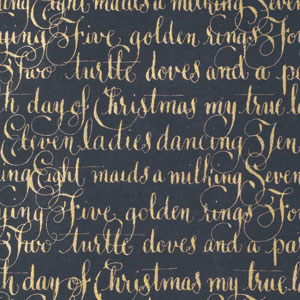 ing Eight maids a milking Seven
ying Five golden rings Fo
Two turtle doves and a pa
h day of Christmas my true l
Eleven ladies dancing Ten
ing Eight maids a milking Seven
ying Five golden rings Fo
Two turtle doves and a pa
h day of Christmas my true l